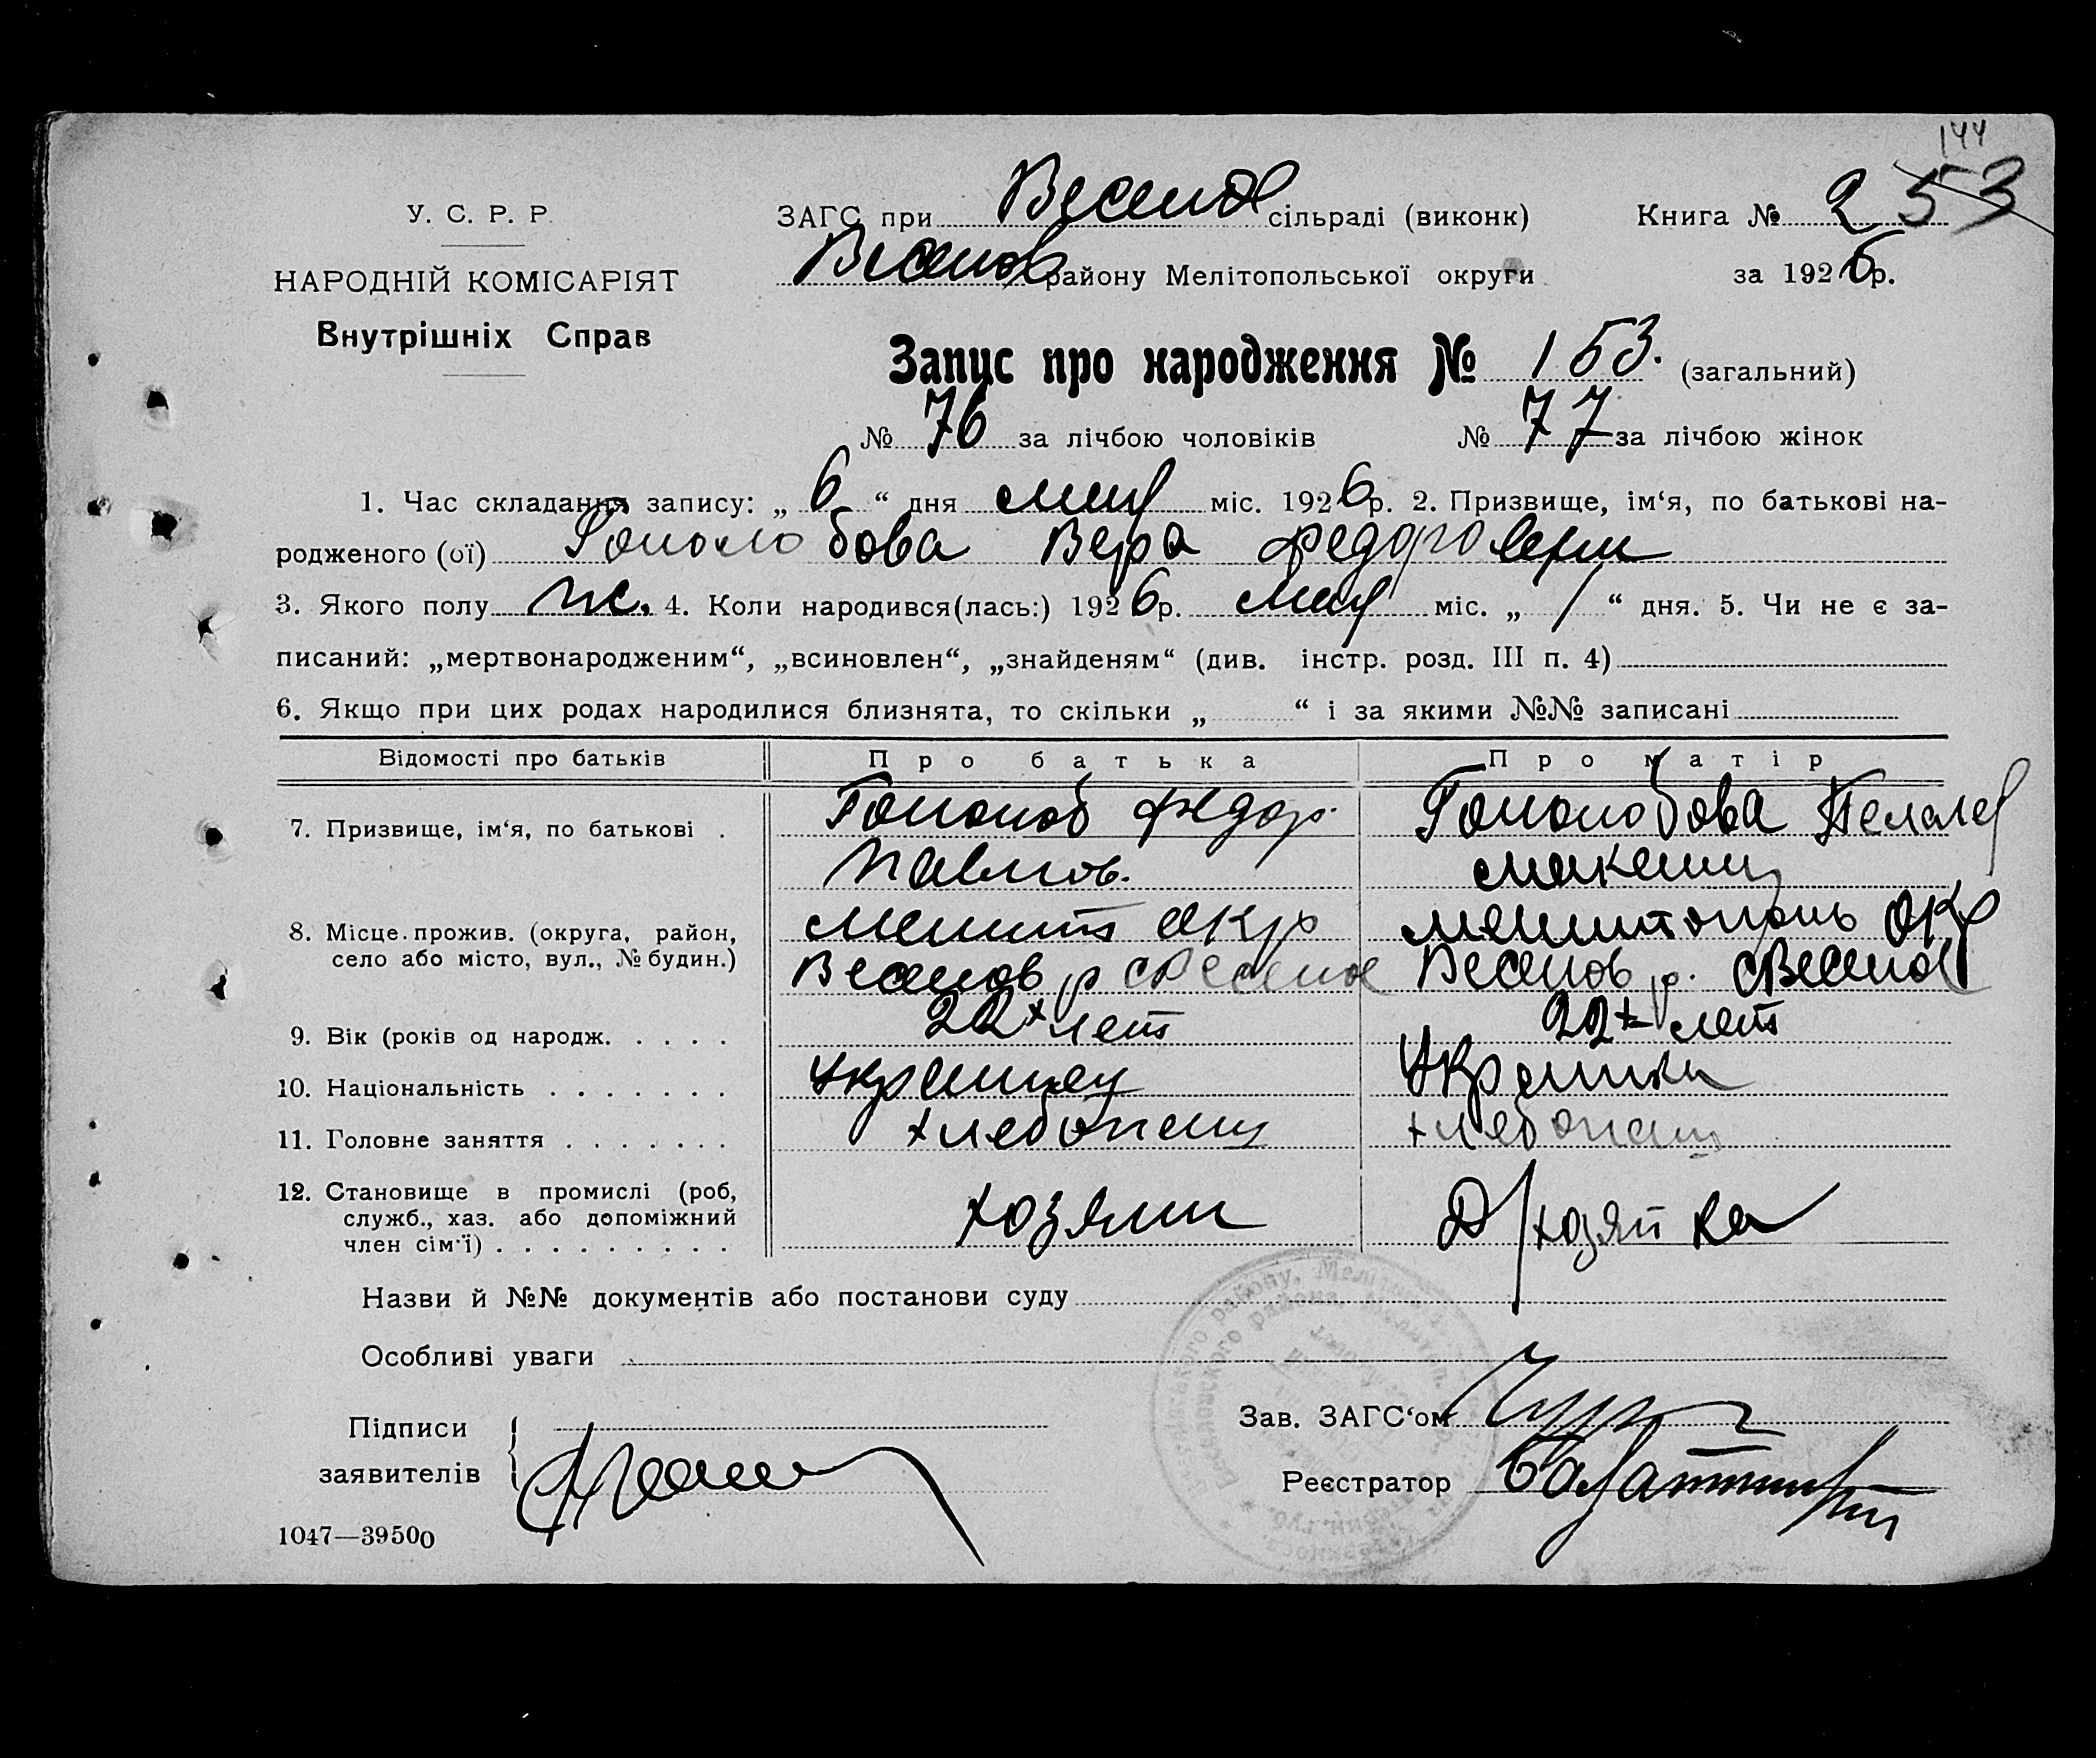 144
53
У. С. Р. Р.
НАРОДНІЙ КОМІСАРІЯТ
Внутрішніх Справ
ЗАГС при Весело сільраді (виконк) Книга № 2
Веселов району Мелітопольської округи за 1926 р.
Запис про народження № 153. (загальний)
№ 76 за лічбою чоловіків № 77 за лічбою жінок
1. Час складання запису: „ 6 “ дня мая міс. 1926 р. 2. Призвище, ім‘я, по батькові на-
родженого (ої) Гололобова Вера Федоровна
3. Якого полу ж. 4. Коли народився(лась:) 1926 р. мая міс. „ 1 “ дня. 5. Чи не є за-
писаний: „мертвонародженим“, „всиновлен“, „знайденям“ (див. інстр. розд. III п. 4)
6. Якщо при цих родах народилися близнята, то скільки „ “ і за якими №№ записані
Відомості про батьків Про батька Про матір
7. Призвище, ім‘я, по батькові . Гололоб Федор. Гололобова Пелагея
Павлов.
8. Місце прожив. (округа, район, Мелит окр Мелитополь окр
село або місто, вул., № будин.) Веселов р с Веселое Веселов р. с Веселое
9. Вік (років од народж. . . . . 22х лет 22х лет
10. Національність . . . . . . . Украинец Украинка
11. Головне заняття . . . . . . . хлебопашц хлебопашц
12. Становище в промислі (роб, хозяин Д/хозяйка
служб., хаз. або допоміжний
член сім‘ї) . . . . . . . . .
Назви й №№ документів або постанови суду
Особливі уваги
Підписи
заявителів
Зав. ЗАГС‘ом
Реєстратор
1047—39500